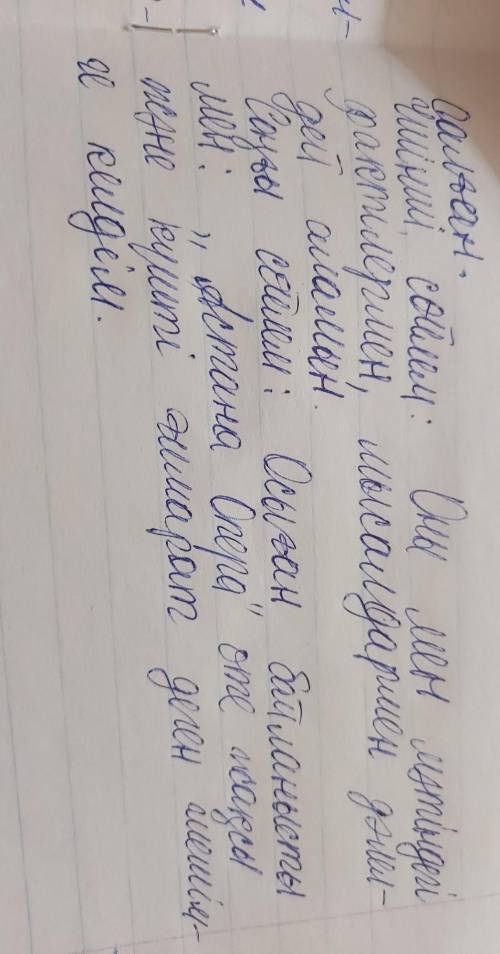 салынған.
Үшінші сөйлем: Оны мен мәтіндегі
фактілермен, мысалдармен дәлел-
дей аламын.
Соңғы сөйлем: Осыған байланысты
мен: "Астана Опера" өте жақсы
және күшті ғимарат деген шешім-
ге келдім.